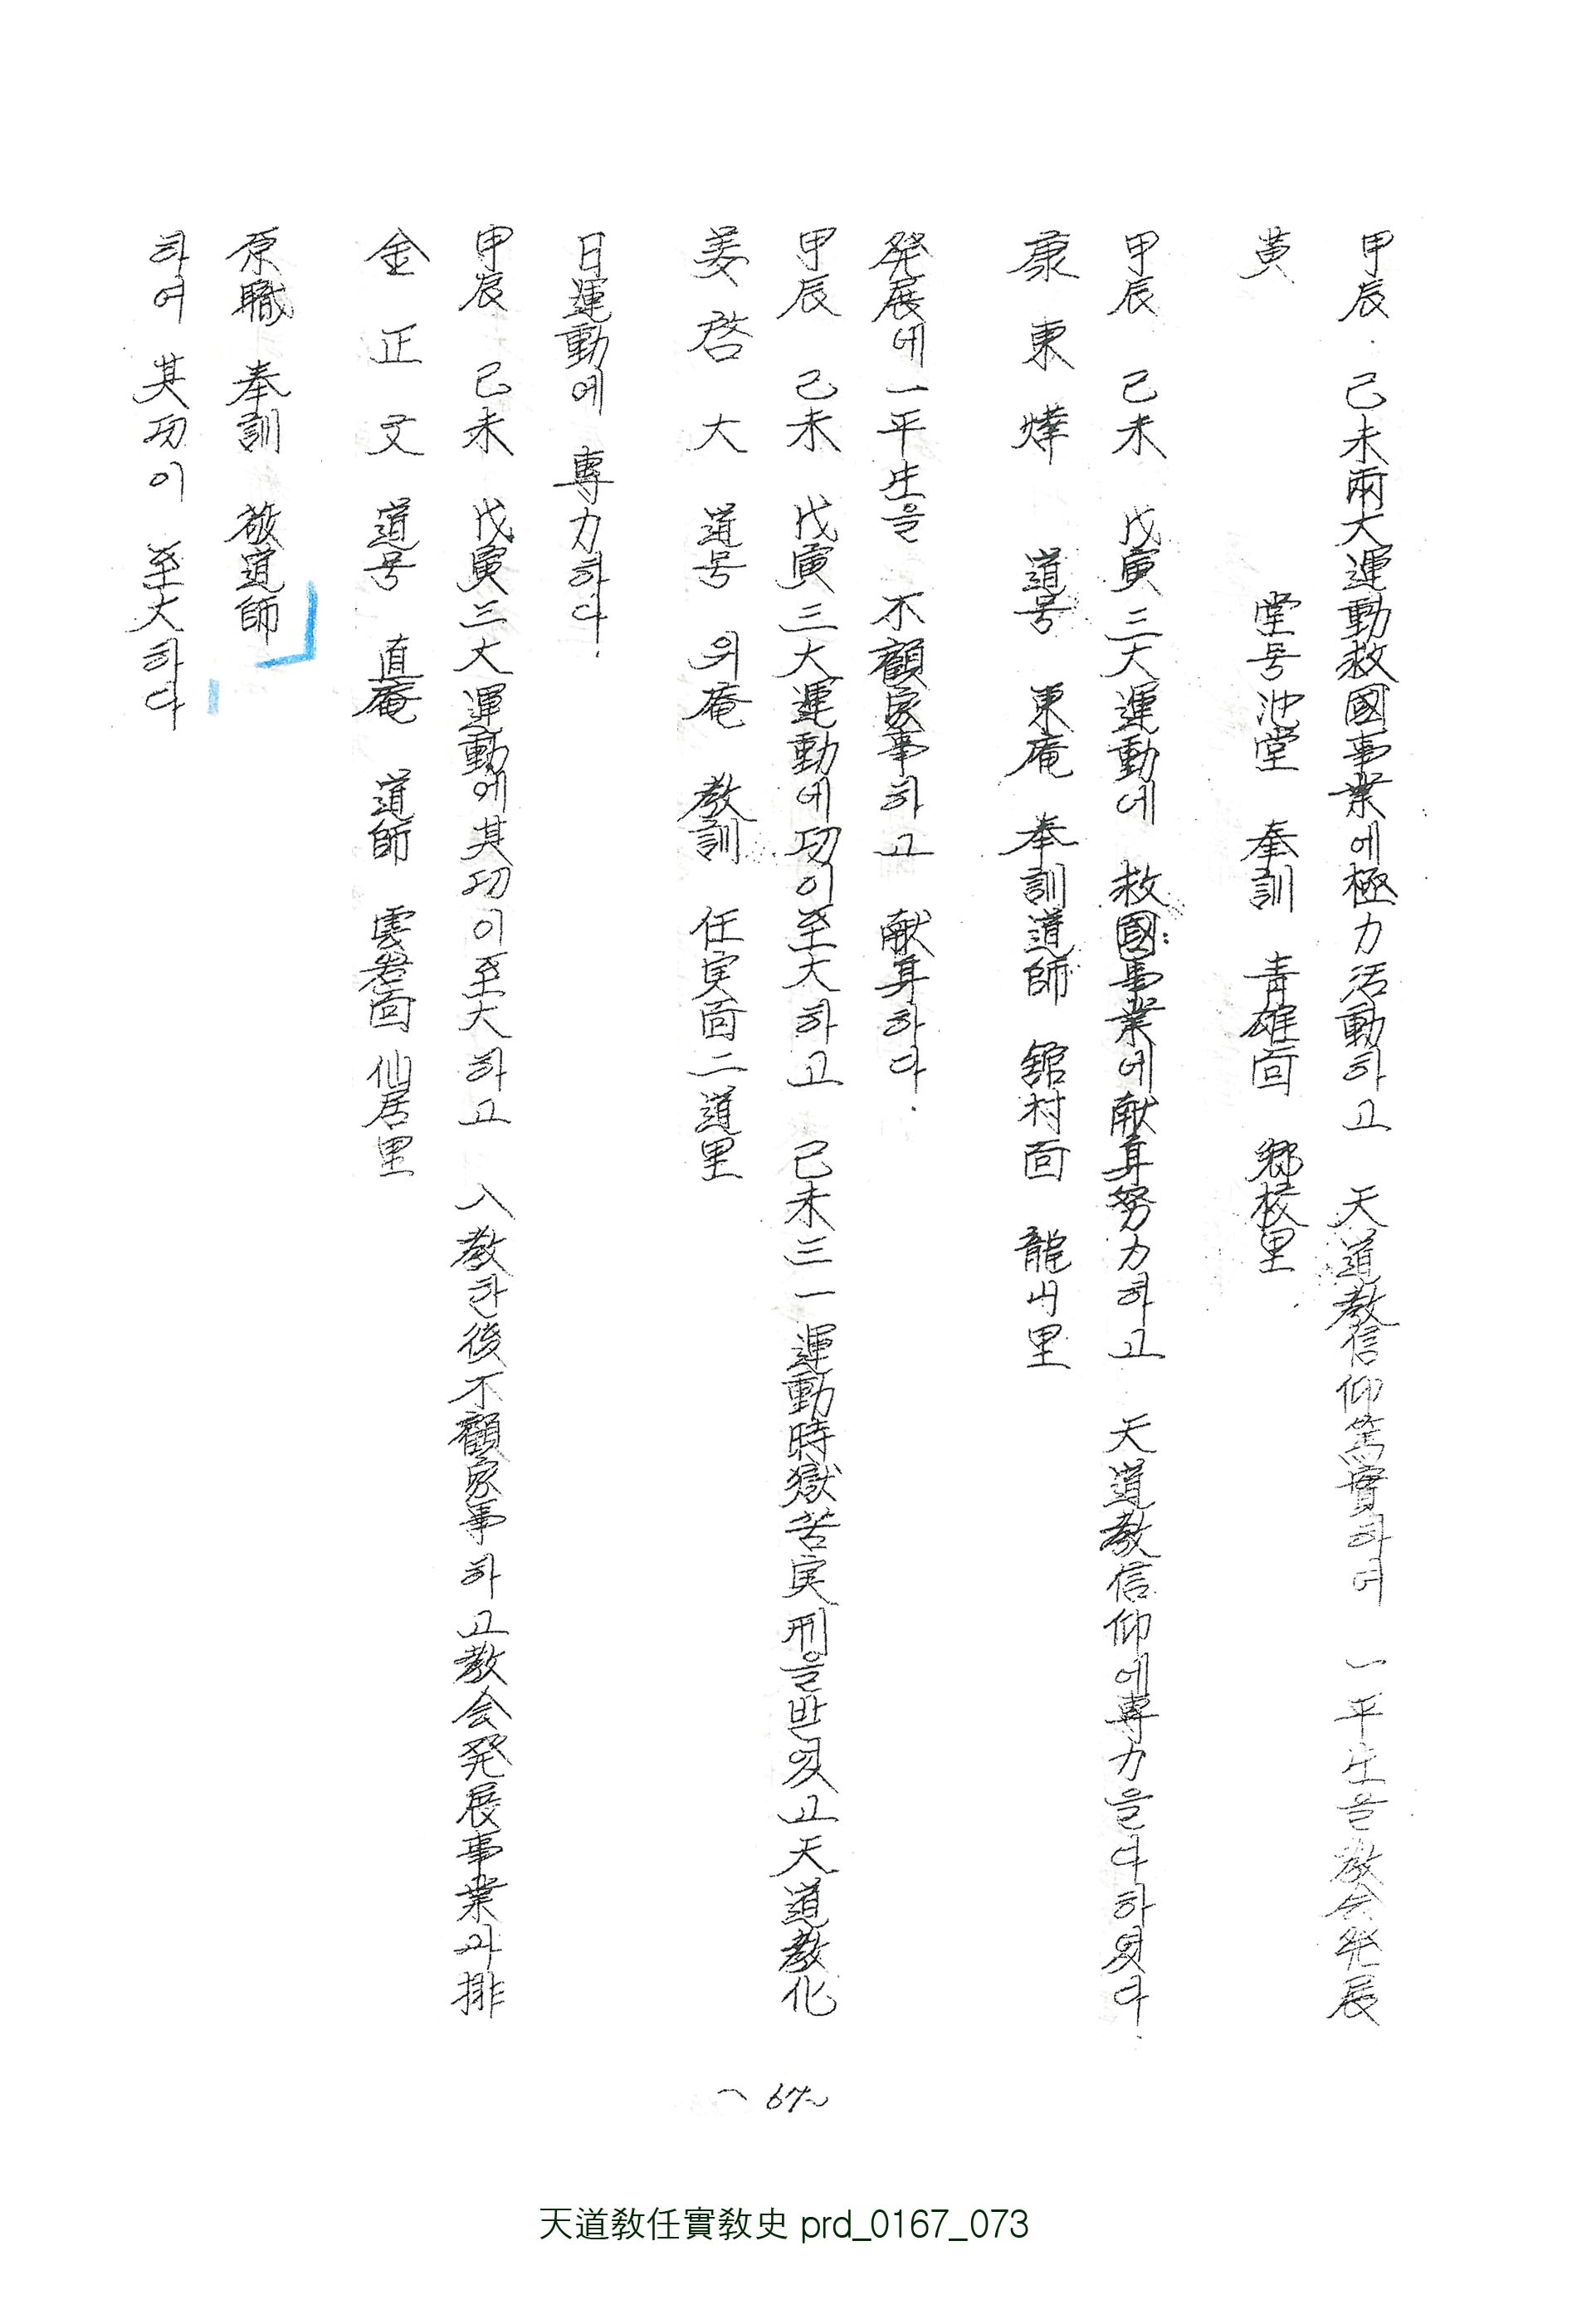 甲辰. 己未兩大運動救國事業에極力活動하고 天道教信仰篤實하여 一平生을教会発展
黃 堂号池堂 奉訓 青雄面 鄕校里
甲辰 己未 戊寅三大運動에 救國事業에献身努力하고 天道教信仰에專力을다하엿다.
康東燁 道号 東庵 奉訓道師 舘村面 龍山里
発展에一平生을 不顧家事하고 献身하다.
甲辰 己未 戊寅三大運動에功이至大하고 己未三一運動時獄苦実刑을받엇고天道教化
姜啓大 道号 의庵 教訓 任実面二道里
日運動에 專力하다.
甲辰 己未 戊寅三大運動에其功이至大하고 入教한後不顧家事하고教会発展事業과排
金正文 道号 直庵 道師 雲岩面 仙居里
原職 奉訓 敬道師
하여 其功이 至大하다
67
天道敎任實敎史 prd_0167_073